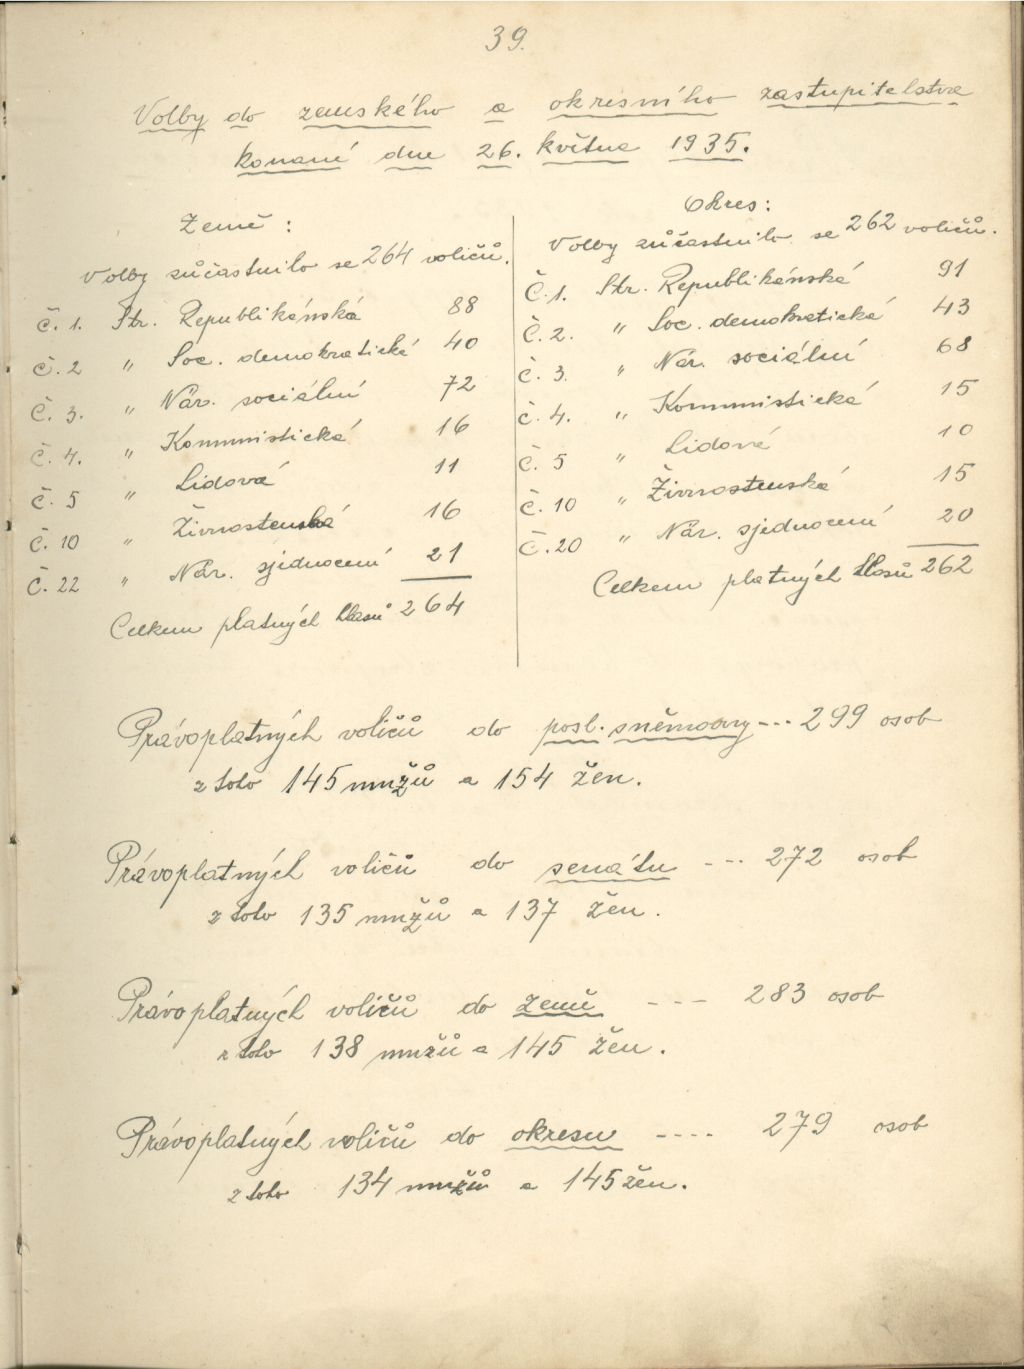 39.
Volby do zemského a okresního zastupitelstva
konané dne 26. května 1935.
Země:
Volby zůčastnilo se 264 voličů.
Č. 1. Str. Republikánská 88
Č. 2 " Soc. demokratická 40
Č. 3. " Nár. sociální 72
Č. 4. " Kommnistická 16
Č. 5 " Lidová 11
Č. 10 " Živnostenská 16
Č. 22 " Nár. sjednocení 21
Celkem platných hlasů 264
Okres:
Volby zůčastnilo se 262 voličů.
Č. 1. Str. Republikánská 91
Č. 2. " Soc. demokratická 43
Č. 3. " Nár. sociální 68
Č. 4. " Kommnistická 15
Č. 5 " Lidová 10
Č. 10 " Živnostenská 15
Č. 20 " Nár. sjednocení 20
Celkem platných hlasů 262
Právoplatných voličů do posl. sněmovny --- 299 osob
z toho 145 mužů a 154 žen.
Právoplatných voličů do senátu --- 272 osob
z toho 135 mužů a 137 žen.
Právoplatných voličů do země --- 283 osob
z toho 138 mužů a 145 žen.
Právoplatných voličů do okresu ---- 279 osob
z toho 134 mužů a 145 žen.